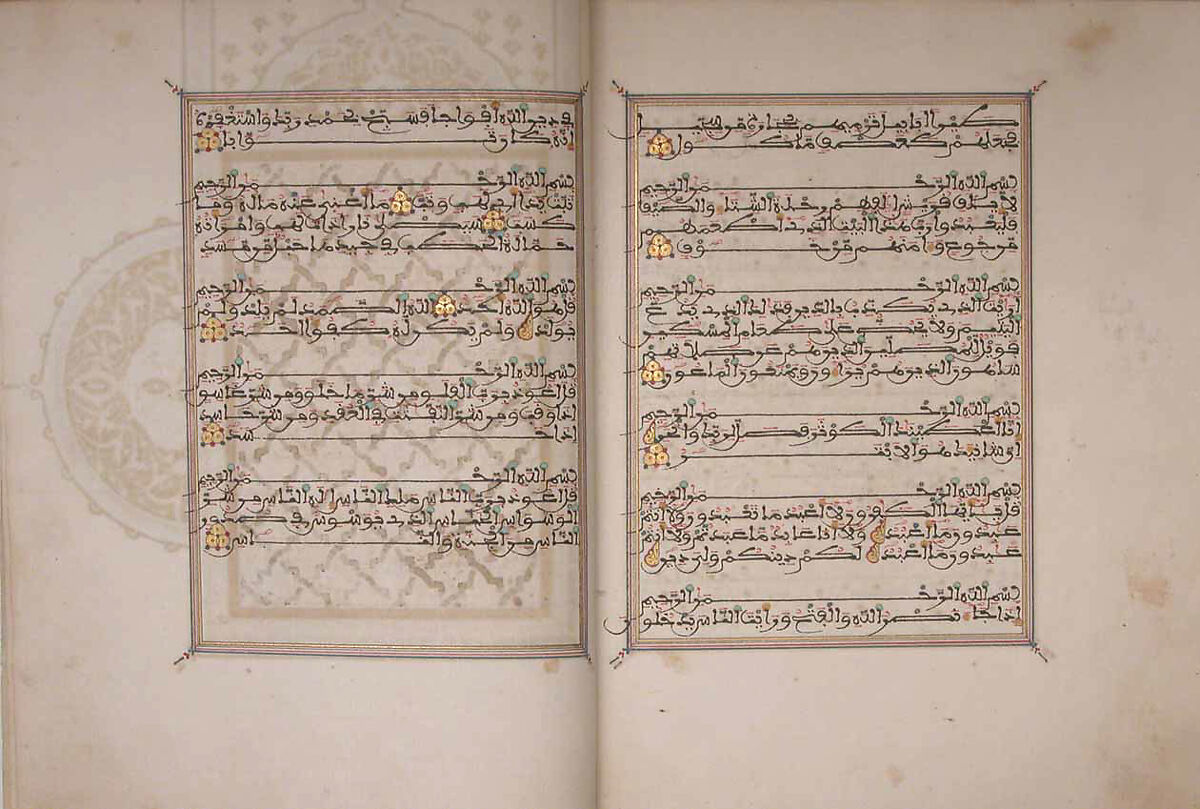 طيرا ابابيل ترميهم بحجارة من سجيل
فجعلهم كعصف ماكول
بسم الله الرحمن الرحيم
لايلف قريش الفهم رحلة الشتاء والصيف
فليعبدوا رب هذا البيت الذي اطعمهم
من جوع وامنهم من خوف
بسم الله الرحمن الرحيم
ارايت الذي يكذب بالدين فذلك الذي يدع
اليتيم ولا يحض على طعام المسكين
فويل للمصلين الذين هم عن صلاتهم
ساهون الذين هم يراءون ويمنعون الماعون
بسم الله الرحمن الرحيم
انا اعطينك الكوثر فصل لربك وانحر
ان شانئك هو الابتر
بسم الله الرحمن الرحيم
قل يايها الكفرون لا اعبد ما تعبدون ولا انتم
عبدون ما اعبد ولا انا عابد ما عبدتم ولا انتم
عبدون ما اعبد لكم دينكم ولي دين
بسم الله الرحمن الرحيم
اذا جاء نصر الله والفتح ورايت الناس يدخلون
في دين الله افواجا فسبح بحمد ربك واستغفره
انه كان توابا
بسم الله الرحمن الرحيم
تبت يدا ابي لهب وتب ما اغنى عنه ماله وما
كسب سيصلى نارا ذات لهب وامراته
حمالة الحطب في جيدها حبل من مسد
بسم الله الرحمن الرحيم
قل هو الله احد الله الصمد لم يلد ولم
يولد ولم يكن له كفوا احد
بسم الله الرحمن الرحيم
قل اعوذ برب الفلق من شر ما خلق ومن شر غاسق
اذا وقب ومن شر النفثت في العقد ومن شر حاسد
اذا حسد
بسم الله الرحمن الرحيم
قل اعوذ برب الناس ملك الناس اله الناس من شر
الوسواس الخناس الذي يوسوس في صدور
الناس من الجنة والناس